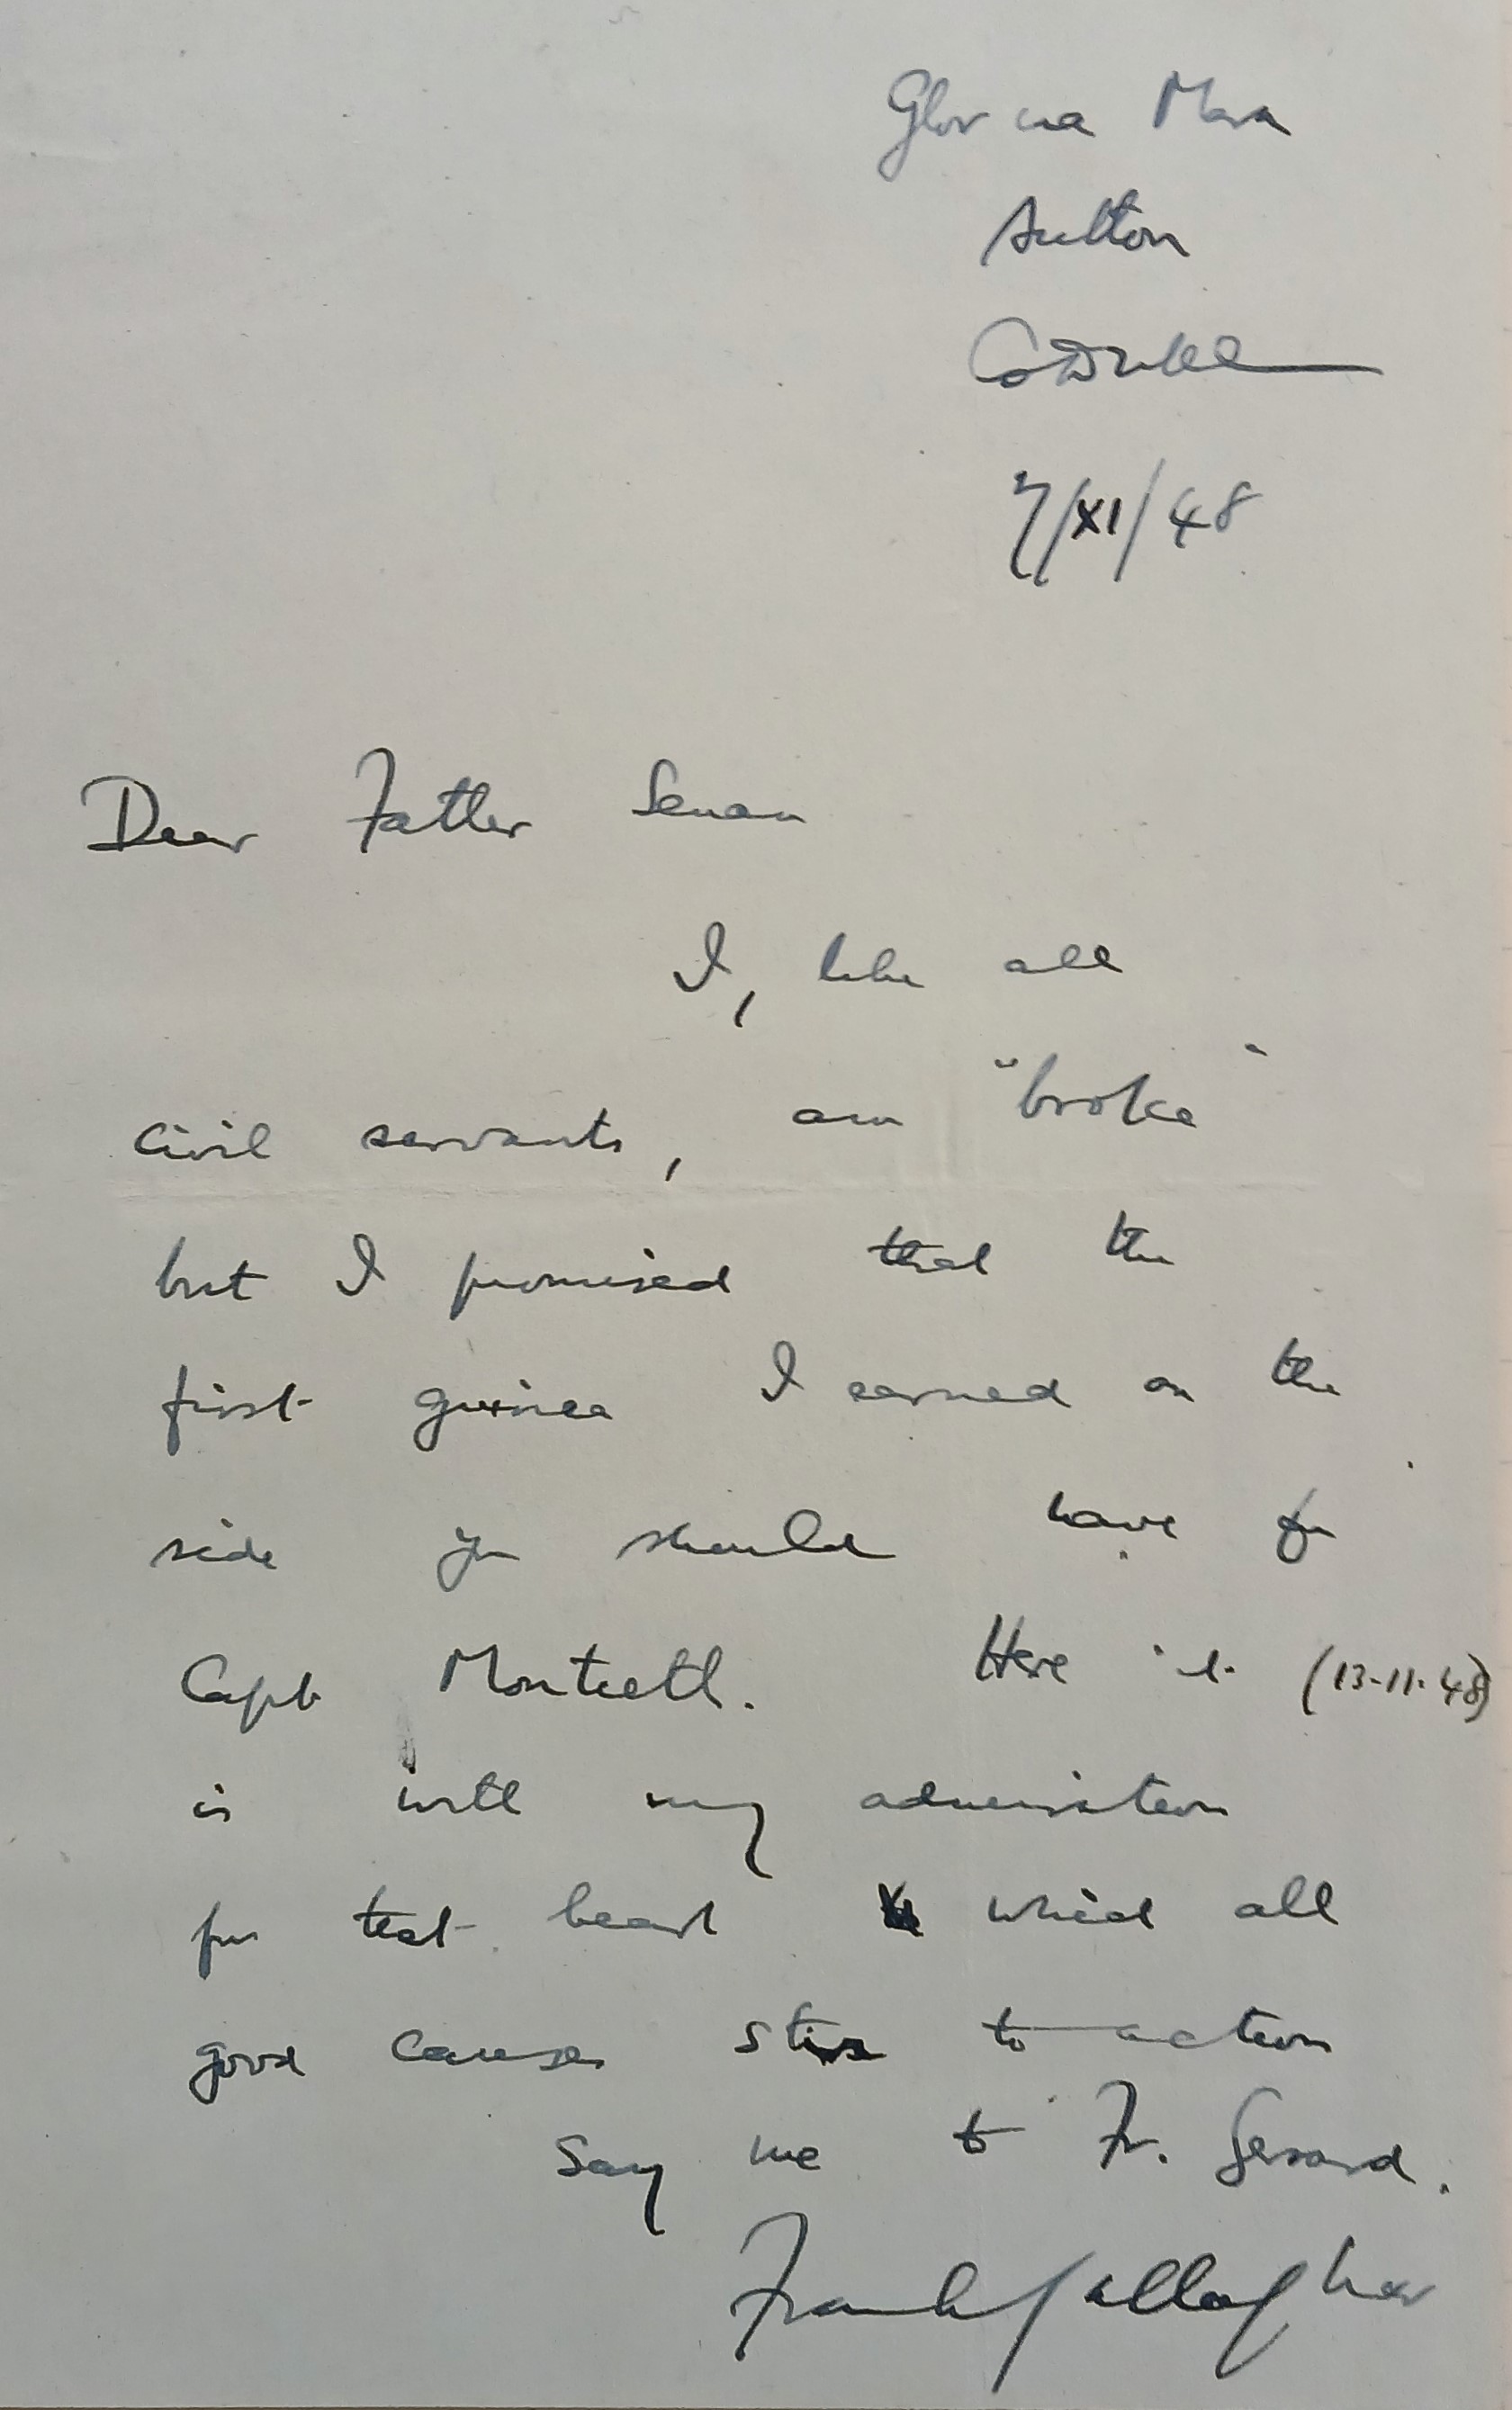 Glor na Mara
Sutton
Co Dublin
7/XI/48
Dear Father Senan
I, like all
civil servants, am "broke"
but I promised that the
first guinea I earned on the
side you should have for
Capt Monteith. Here it (13-11-48)
is with my admiration
for that heart which all
good causes stir to action
Say me to Fr. Gerard.
Frank Gallagher